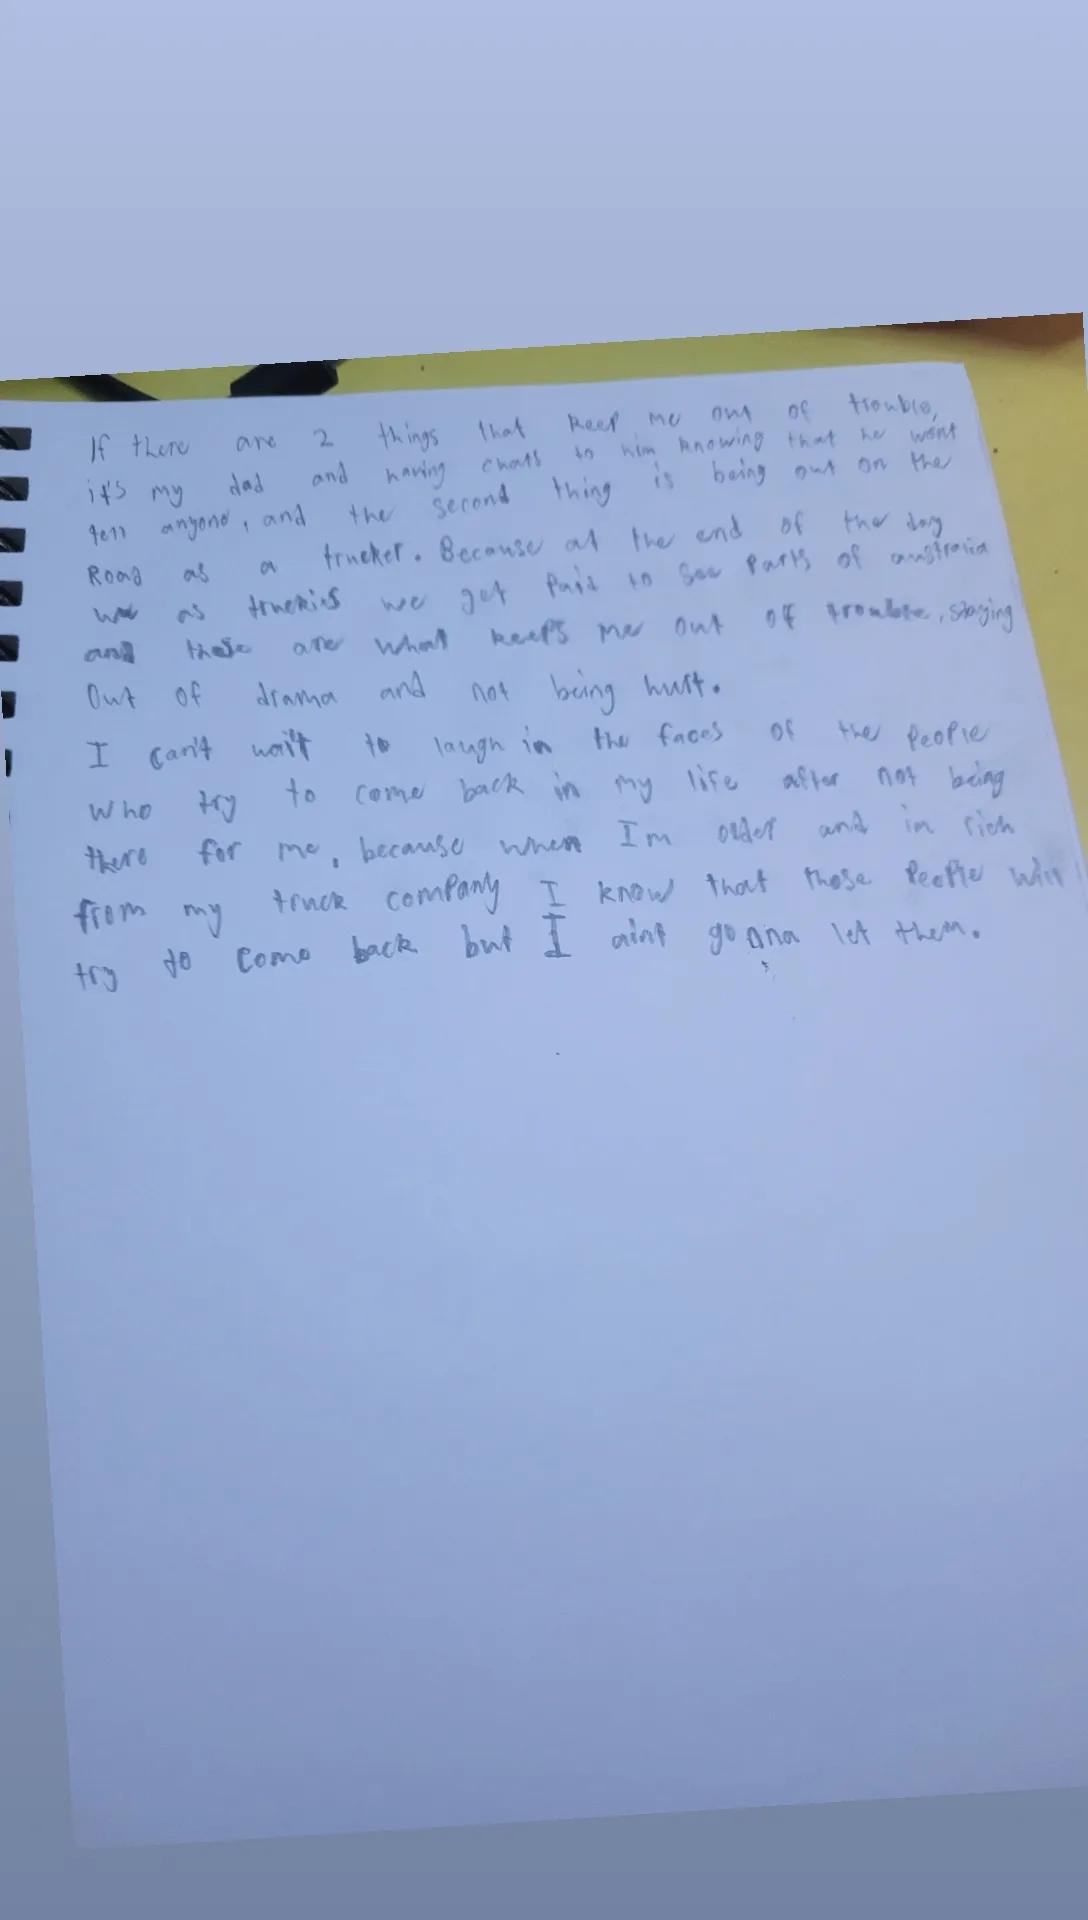 If there are 2 things that keep me out of trouble,
it's my dad and having chats to him knowing that he wont
tell anyone, and the second thing is being out on the
Road as a trucker. Because at the end of the day
as truckies we get paid to see parts of australia
and these are what keeps me out of trouble, staying
Out of drama and not being hurt.
I can't wait to laugh in the faces of the people
who try to come back in my life after not being
there for me, because when I'm older and im rich
from my truck company I know that those people will
try to come back but I aint gonna let them.